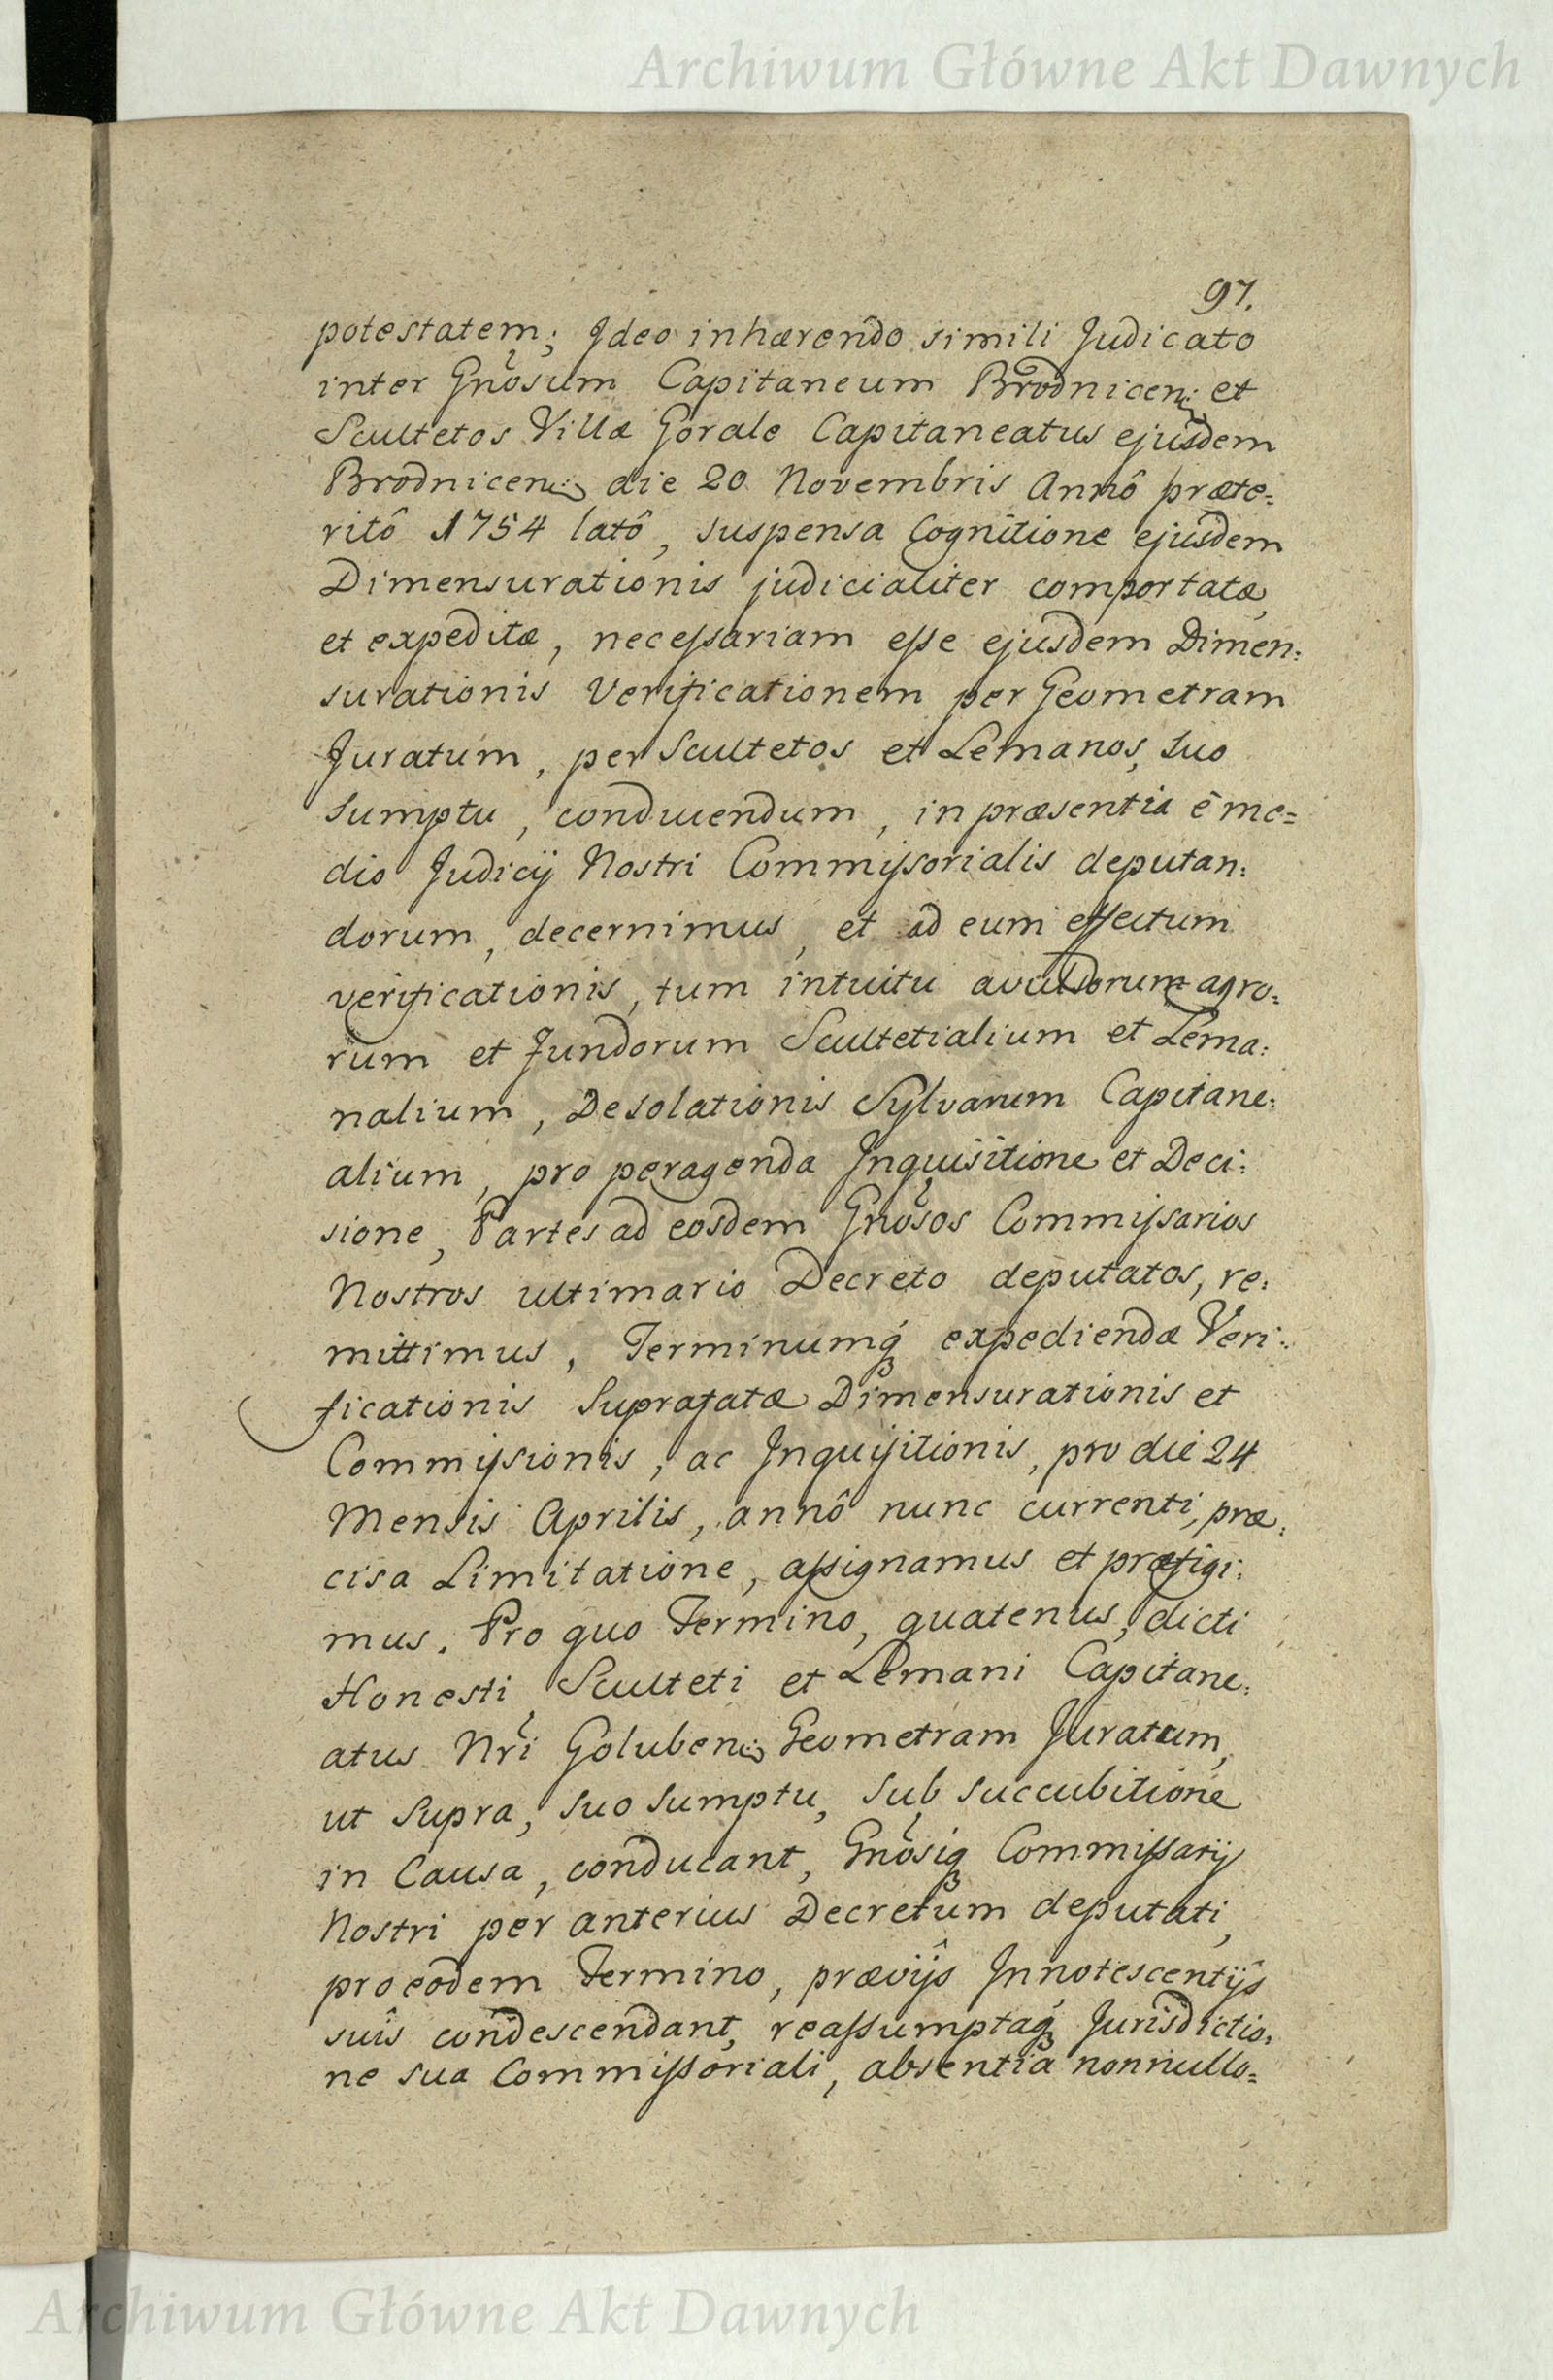 Archiwum Główne Akt Dawnych
97.
potestatem; Ideo inhærendo simili Judicato
inter Gnõsum Capitaneum Brodnicen: et
Scultetos Villæ Gorale Capitaneatus ejusdem
Brodnicen: die 20 Novembris Annô præte=
ritô 1754 latô, suspensa Cognitione ejusdem
Dimensurationis judicialiter comportatæ,
et expeditæ, necessariam esse ejusdem Dimen:
surationis Verificationem per Geometram
Juratum, per Scultetos et Lemanos, suo
sumptu, conducendum, in præsentia è me=
dio Judicij Nostri Commissorialis deputan:
dorum, decernimus, et ad eum effectum
verificationis, tum intuitu avulsorum agro:
rum et fundorum Scultetialium et Lema:
nalium, Desolationis Sylvarum Capitane:
alium, pro peragenda Inquisitione et Deci:
sione, Partes ad eosdem Gnõsos Commissarios
Nostros ultimario Decreto deputatos, re:
mittimus, Terminumq́ expediendæ Veri:
ficationis Suprafatæ Dimensurationis et
Commissionis, ac Inquisitionis, pro die 24
Mensis Aprilis, annô nunc currenti, præ:
cisa Limitatione, assignamus et præfigi:
mus. Pro quo Termino, quatenus, dicti
Honesti Sculteti et Lemani Capitane:
atus Nr̃i Golubenẽ: Geometram Juratum,
ut supra, suo sumptu, sub succubitione
in Causa, conducant, Gnõsiq́ Commissarij
Nostri per anterius Decretum deputati,
pro eodem Termino, prævijs Innotescentijs
suis condescendant, reassumptaq́ Jurisdictio:
ne sua Commissoriali, absentia nonnullo=
Archiwum Główne Akt Dawnych